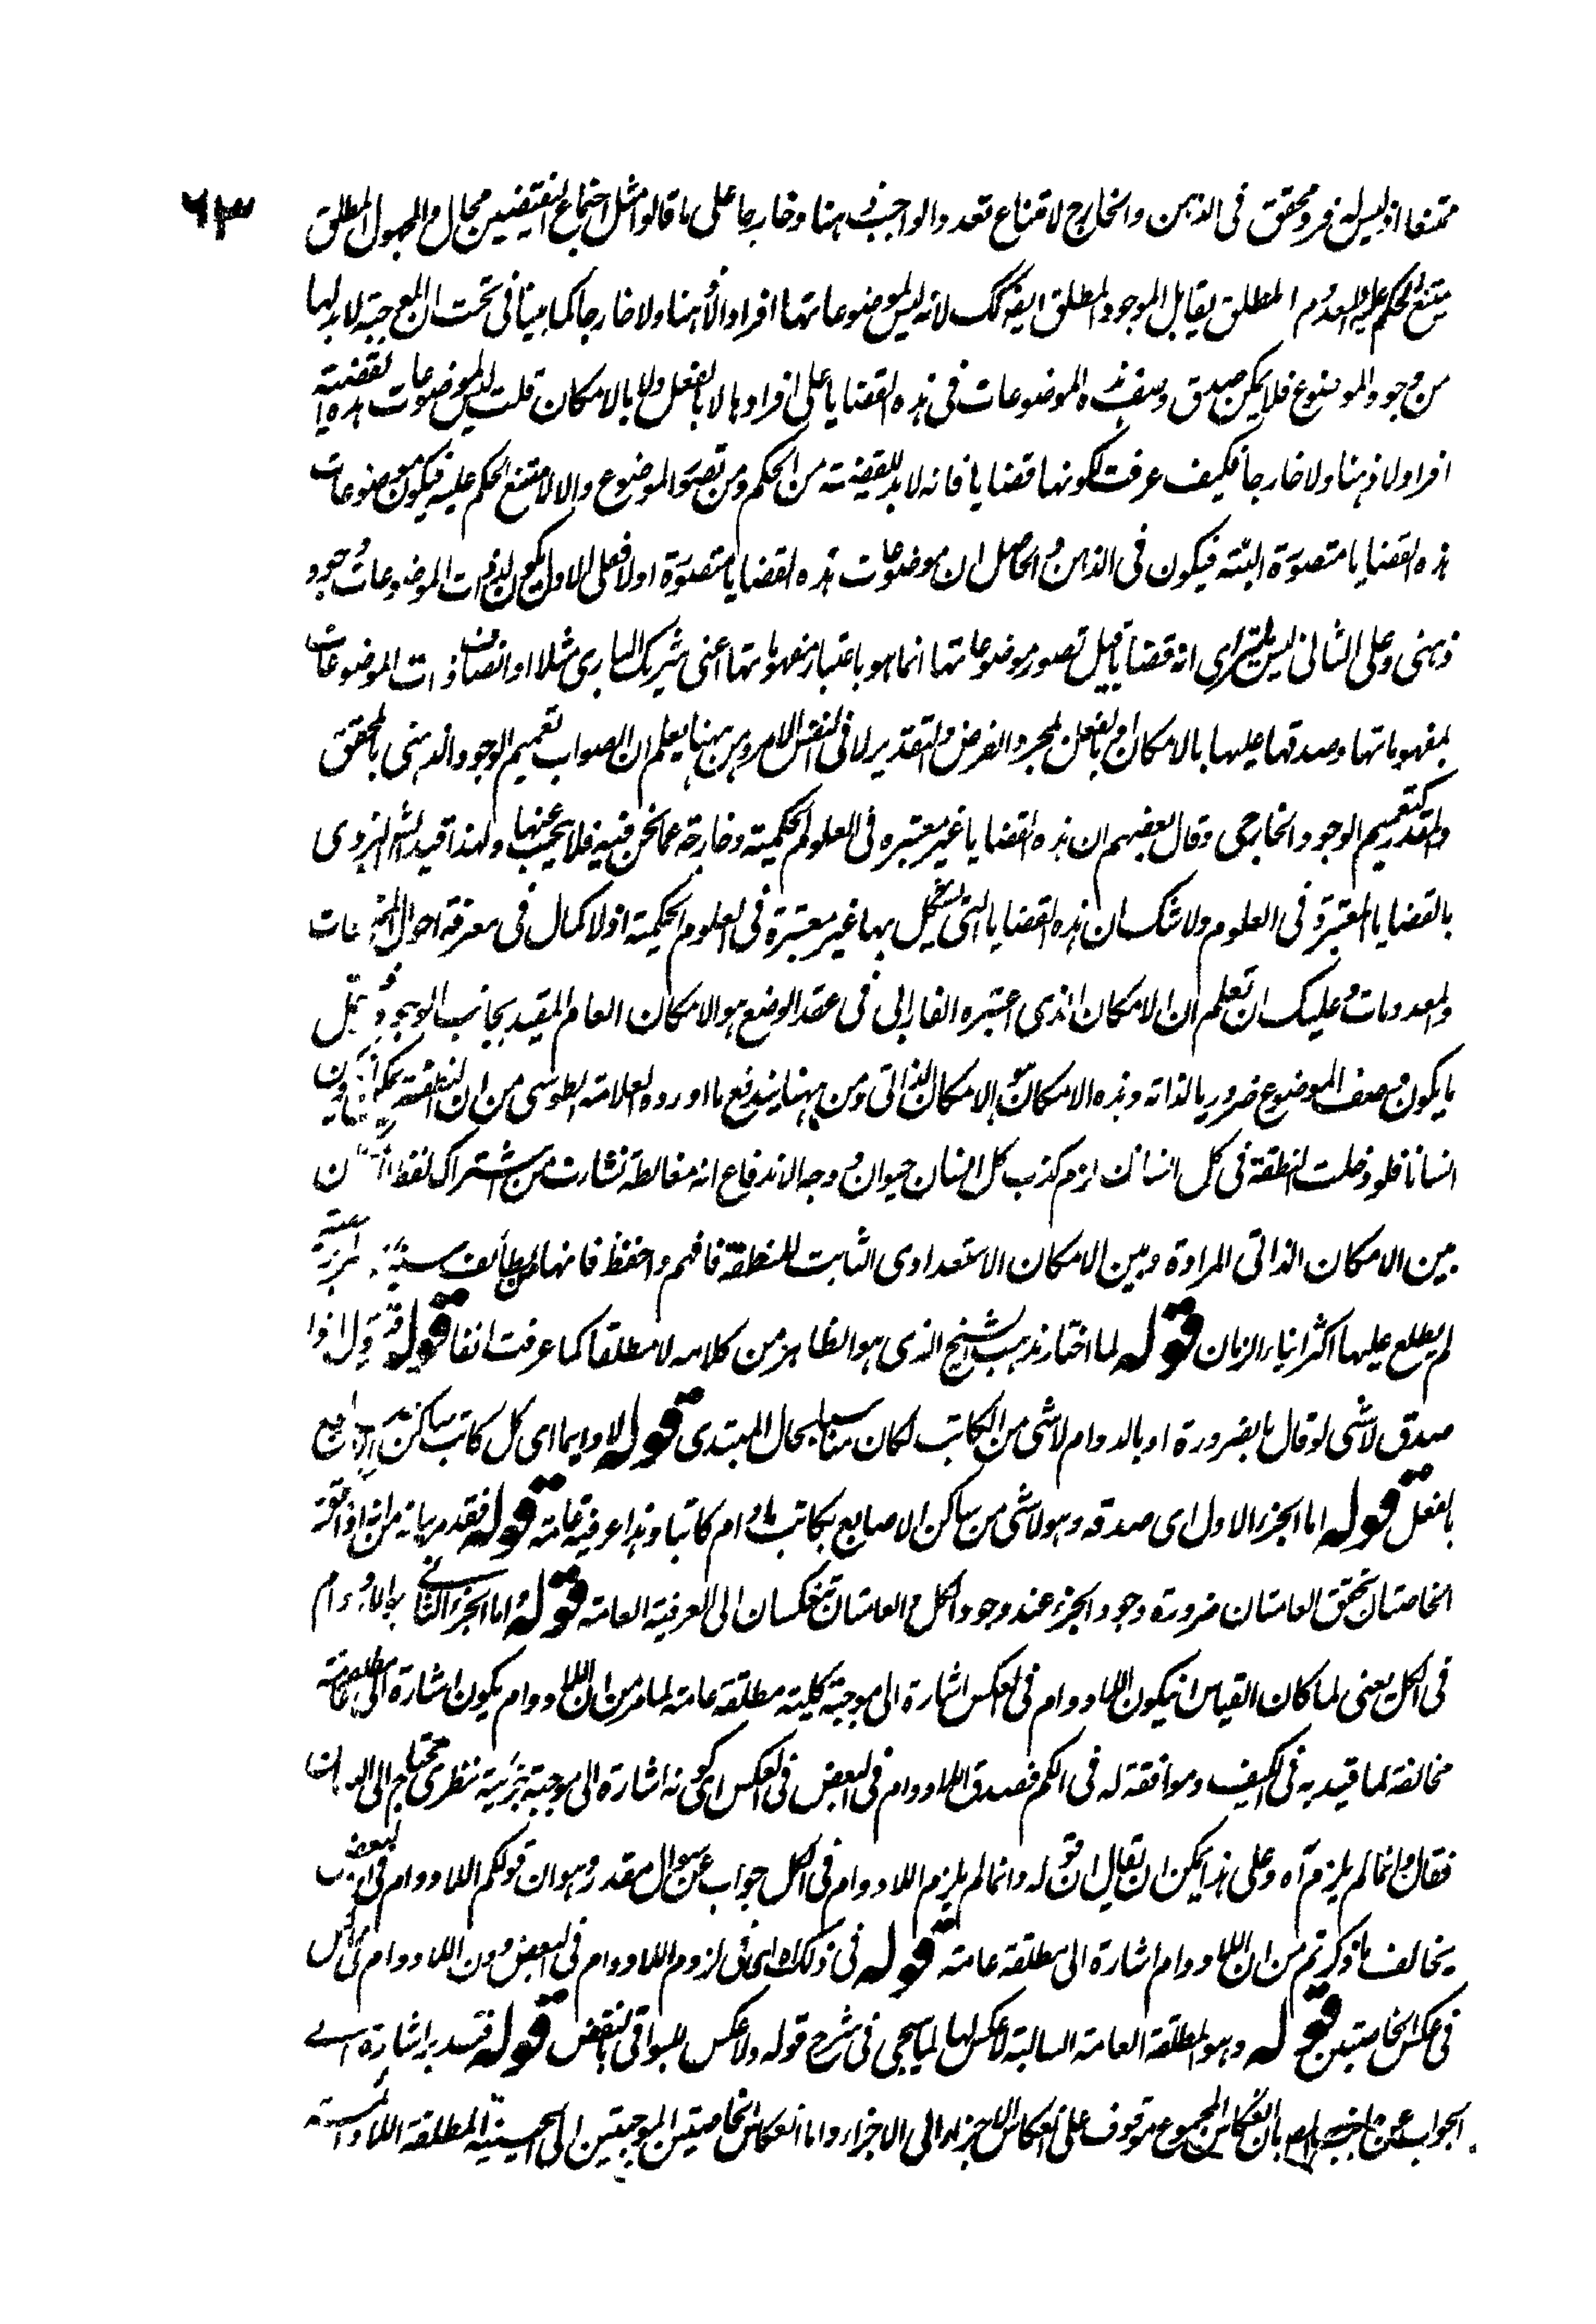 ٦٣
ممتنعا اذ ليس له فرد محقق فى الذهن والخارج لامتناع تعدد الواجب ذهنا وخارجا على ما قالوا مثل اجتماع النقيضين محال والمجهول المطلق
يمتنع الحكم عليه والمعدوم المطلق يقابل الموجود المطلق ايضا كك لانه ليس لموضوعاتها افراد لا ذهنا ولا خارجا كما بينا فى تحت ان الموجبة لا بد لها
من وجود الموضوع فلا يمكن صدق وصف هذه الموضوعات فى هذه القضايا على افرادها لا بالفعل ولا بالامكان قلت ليس لموضوعات هذه القضية
افراد لا ذهنا ولا خارجا فكيف عرفت كونها قضايا فانه لا بد للقضية من الحكم ومن تصور الموضوع والا لامتنع الحكم عليه فيكون موضوعات
هذه القضايا متصورة البتة فيكون فى الذهن والحاصل ان موضوعات هذه القضايا متصورة اولا فعلى الاول يكون لذات الموضوعات وجود
ذهنى وعلى الثانى ليس بقضايا قيل تصور موضوعاتها انما هو باعتبار مفهوماتها اعنى شريك البارى مثلا او اتصاف ذات الموضوعات
بمفهوماتها وصدقها عليها بالامكان او بالفعل بمجرد الفرض والتقدير لا فى النفس الامر ومن ههنا يعلم ان الصواب تعميم الوجود الذهنى بالمحقق
والمقدر كتعميم الوجود الخارجى وقال بعضهم ان هذه القضايا غير معتبره فى العلوم الحكمية وخارجة عما نحن فيه فلا يجب عنها ولهذا قيد اليزدى
بالقضايا المعتبرة فى العلوم ولا شك ان هذه القضايا التى استشكل بها غير معتبرة فى العلوم الحكمية اذ لا كمال فى معرفة احوال
والمعدومات وعليك ان تعلم ان الامكان الذى اعتبره الفارابى فى عقد الوضع هو الامكان العام المقيد بجانب الوجود
ما يكون وصف الموضوع ضروريا لذاته وهذه الامكان هو الامكان الذاتى ومن ههنا يندفع ما اورده العلامة الطوسى من ان النطفة يمكن ان يكون
انسانا فلو دخلت النطفة فى كل انسان لزم كذب كل انسان حيوان ووجه الاندفاع انه مغالطة نشارت من اشتراك لفظ
بين الامكان الذاتى المرادة وبين الامكان الاستعدادى الثابت للنطفة فافهم واحفظ فانها من لطائف
لم يطلع عليها اكثر ابناء الزمان قوله لما اختار مذهب الشيخ الذى هو الظاهر من كلامه لا مطلقا كما عرفت انفا قوله
صدق لاشى لو قال بالضرورة او بالدوام لاشى من الكاتب لكان مناسبا بحال المبتدى قوله لا دايما اى كل كاتب ساكن الاصابع
بالفعل قوله اما الجزء الاول اى صدقه وهو لاشى من ساكن الاصابع بكاتب مادام كاتبا وهذا عرفية عامة قوله فقد مر بيانه من انه اذا
الخاصتان تحقق العامتان ضرورة وجود الجزء عند وجود الكل والعامتان تنعكسان الى العرفية العامة قوله اما الجزء الثانى
فى الكل يعنى لما كان القياس ان يكون اللادوام فى العكس اشارة الى موجبة كلية مطلقة عامة لما مر من ان اللادوام يكون اشارة الى مطلقة عامة
مخالفة لما قيد به فى الكيف وموافقة له فى الكم فصدق اللادوام فى البعض فى العكس اى كونه اشارة الى موجبة جزئية نظرى محتاج الى
فقال وانما لم يلزم آه وعلى هذا يمكن ان يقال ان قوله وانما لم يلزم اللادوام فى الكل جواب عن سوال مقدر وهو ان قولكم اللادوام فى البعض
يخالف ما ذكرتم من ان اللادوام اشارة الى مطلقة عامة قوله فى ذلك اى فى لزوم اللادوام فى البعض دون اللادوام فى الكل
فى عكس الخاصتين قوله وهو المطلقة العامة السالبة لا عكس لها لما سيجى فى شرح قوله ولا عكس للبواقى بالنقض قوله فتدبر اشارة الى
الجواب عن بان انعكاس المجموع موقوف على انعكاس الاجزاء الى الاجزاء واما انعكاس الخاصيتين الموجبتين الى الحينية المطلقة اللادائمة